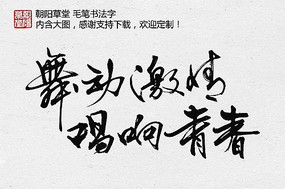 朝阳草堂 毛笔书法字
内含大图，感谢支持下载，欢迎定制！
舞动激情
唱响青春